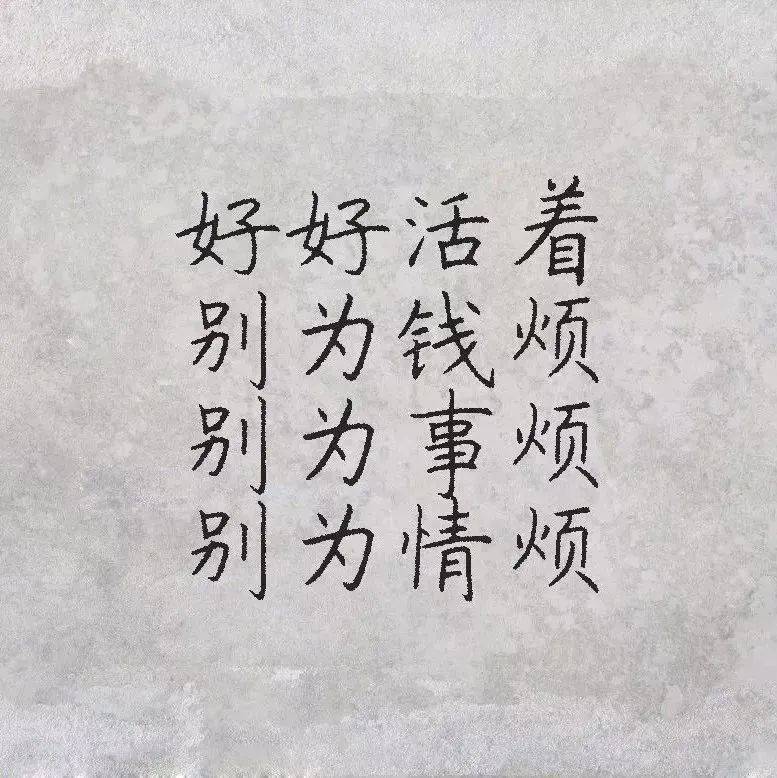 好好活着
别为钱烦
别为事烦
别为情烦